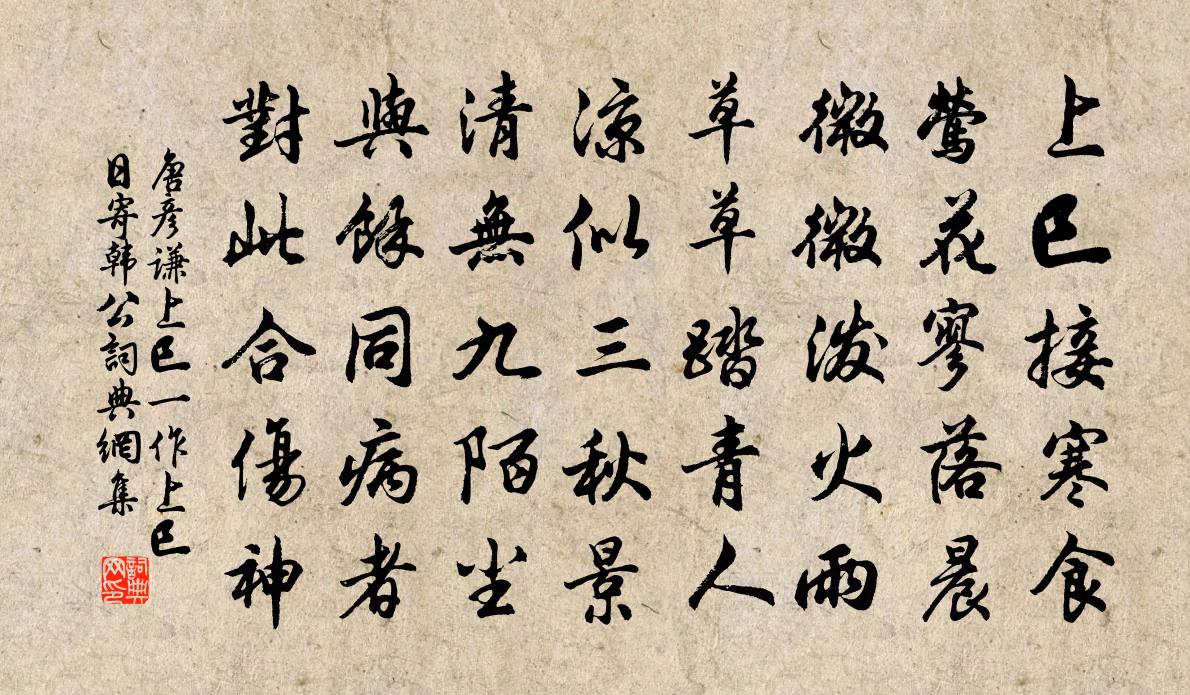 上巳接寒食
鶯花寥落晨
微微潑火雨
草草踏青人
涼似三秋景
清無九陌尘
與餘同病者
對此合傷神
唐彥谦上巳一作上巳
日寄韩公詞典網集
詞典
网印